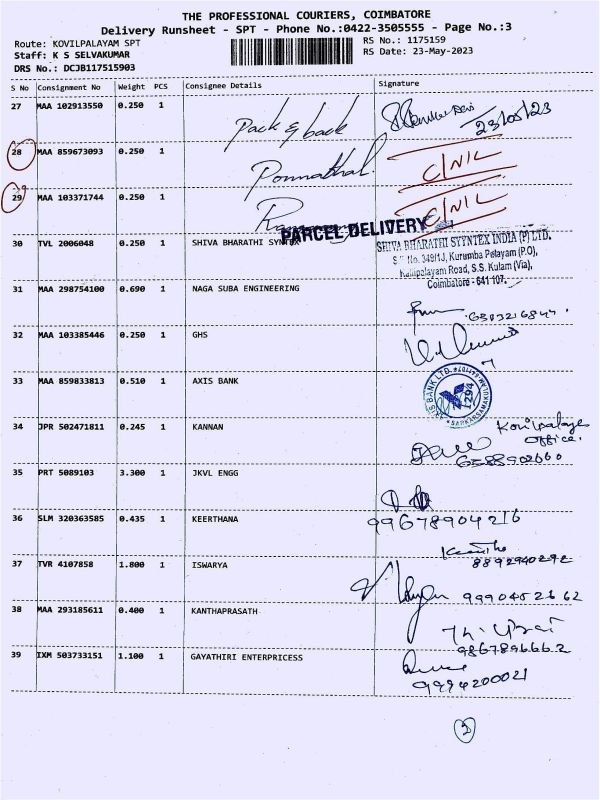 THE PROFESSIONAL COURIERS, COIMBATORE
Delivery Runsheet - SPT - Phone No.:0422-3505555 - Page No.:3
Route: KOVILPALAYAM SPT
RS No.: 1175159
Staff: K S SELVAKUMAR
RS Date: 23-May-2023
DRS No.: DCJB117515903
S No Consignment No Weight PCS Consignee Details Signature
27 MAA 102913550 0.250 1 Pack & back 23/05/23
28 MAA 859673093 0.250 1 Ponnathal C/NIL
29 MAA 103371744 0.250 1 C/NIL
PARCEL DELIVERY
30 TVL 2006048 0.250 1 SHIVA BHARATHI SYNTEX
SHIVA BHARATHI SYYNTEX INDIA (P) LTD.
S.F. No. 349/1J, Kurumba Pelayam (P.O),
Kallipalayam Road, S.S. Kulam (Via),
Coimbatore - 641 107.
31 MAA 298754100 0.690 1 NAGA SUBA ENGINEERING
32 MAA 103385446 0.250 1 GHS
33 MAA 859833813 0.510 1 AXIS BANK
AXIS BANK LTD.
1294
34 JPR 502471811 0.245 1 KANNAN
Kovilpalayam
office.
6588902660
35 PRT 5089103 3.300 1 JKVL ENGG
36 SLM 320363585 0.435 1 KEERTHANA
99678904216
37 TVR 4107858 1.800 1 ISWARYA
8892940292
38 MAA 293185611 0.400 1 KANTHAPRASATH
9990452662
9867896662
39 IXM 503733151 1.100 1 GAYATHIRI ENTERPRICESS
9994200021
2